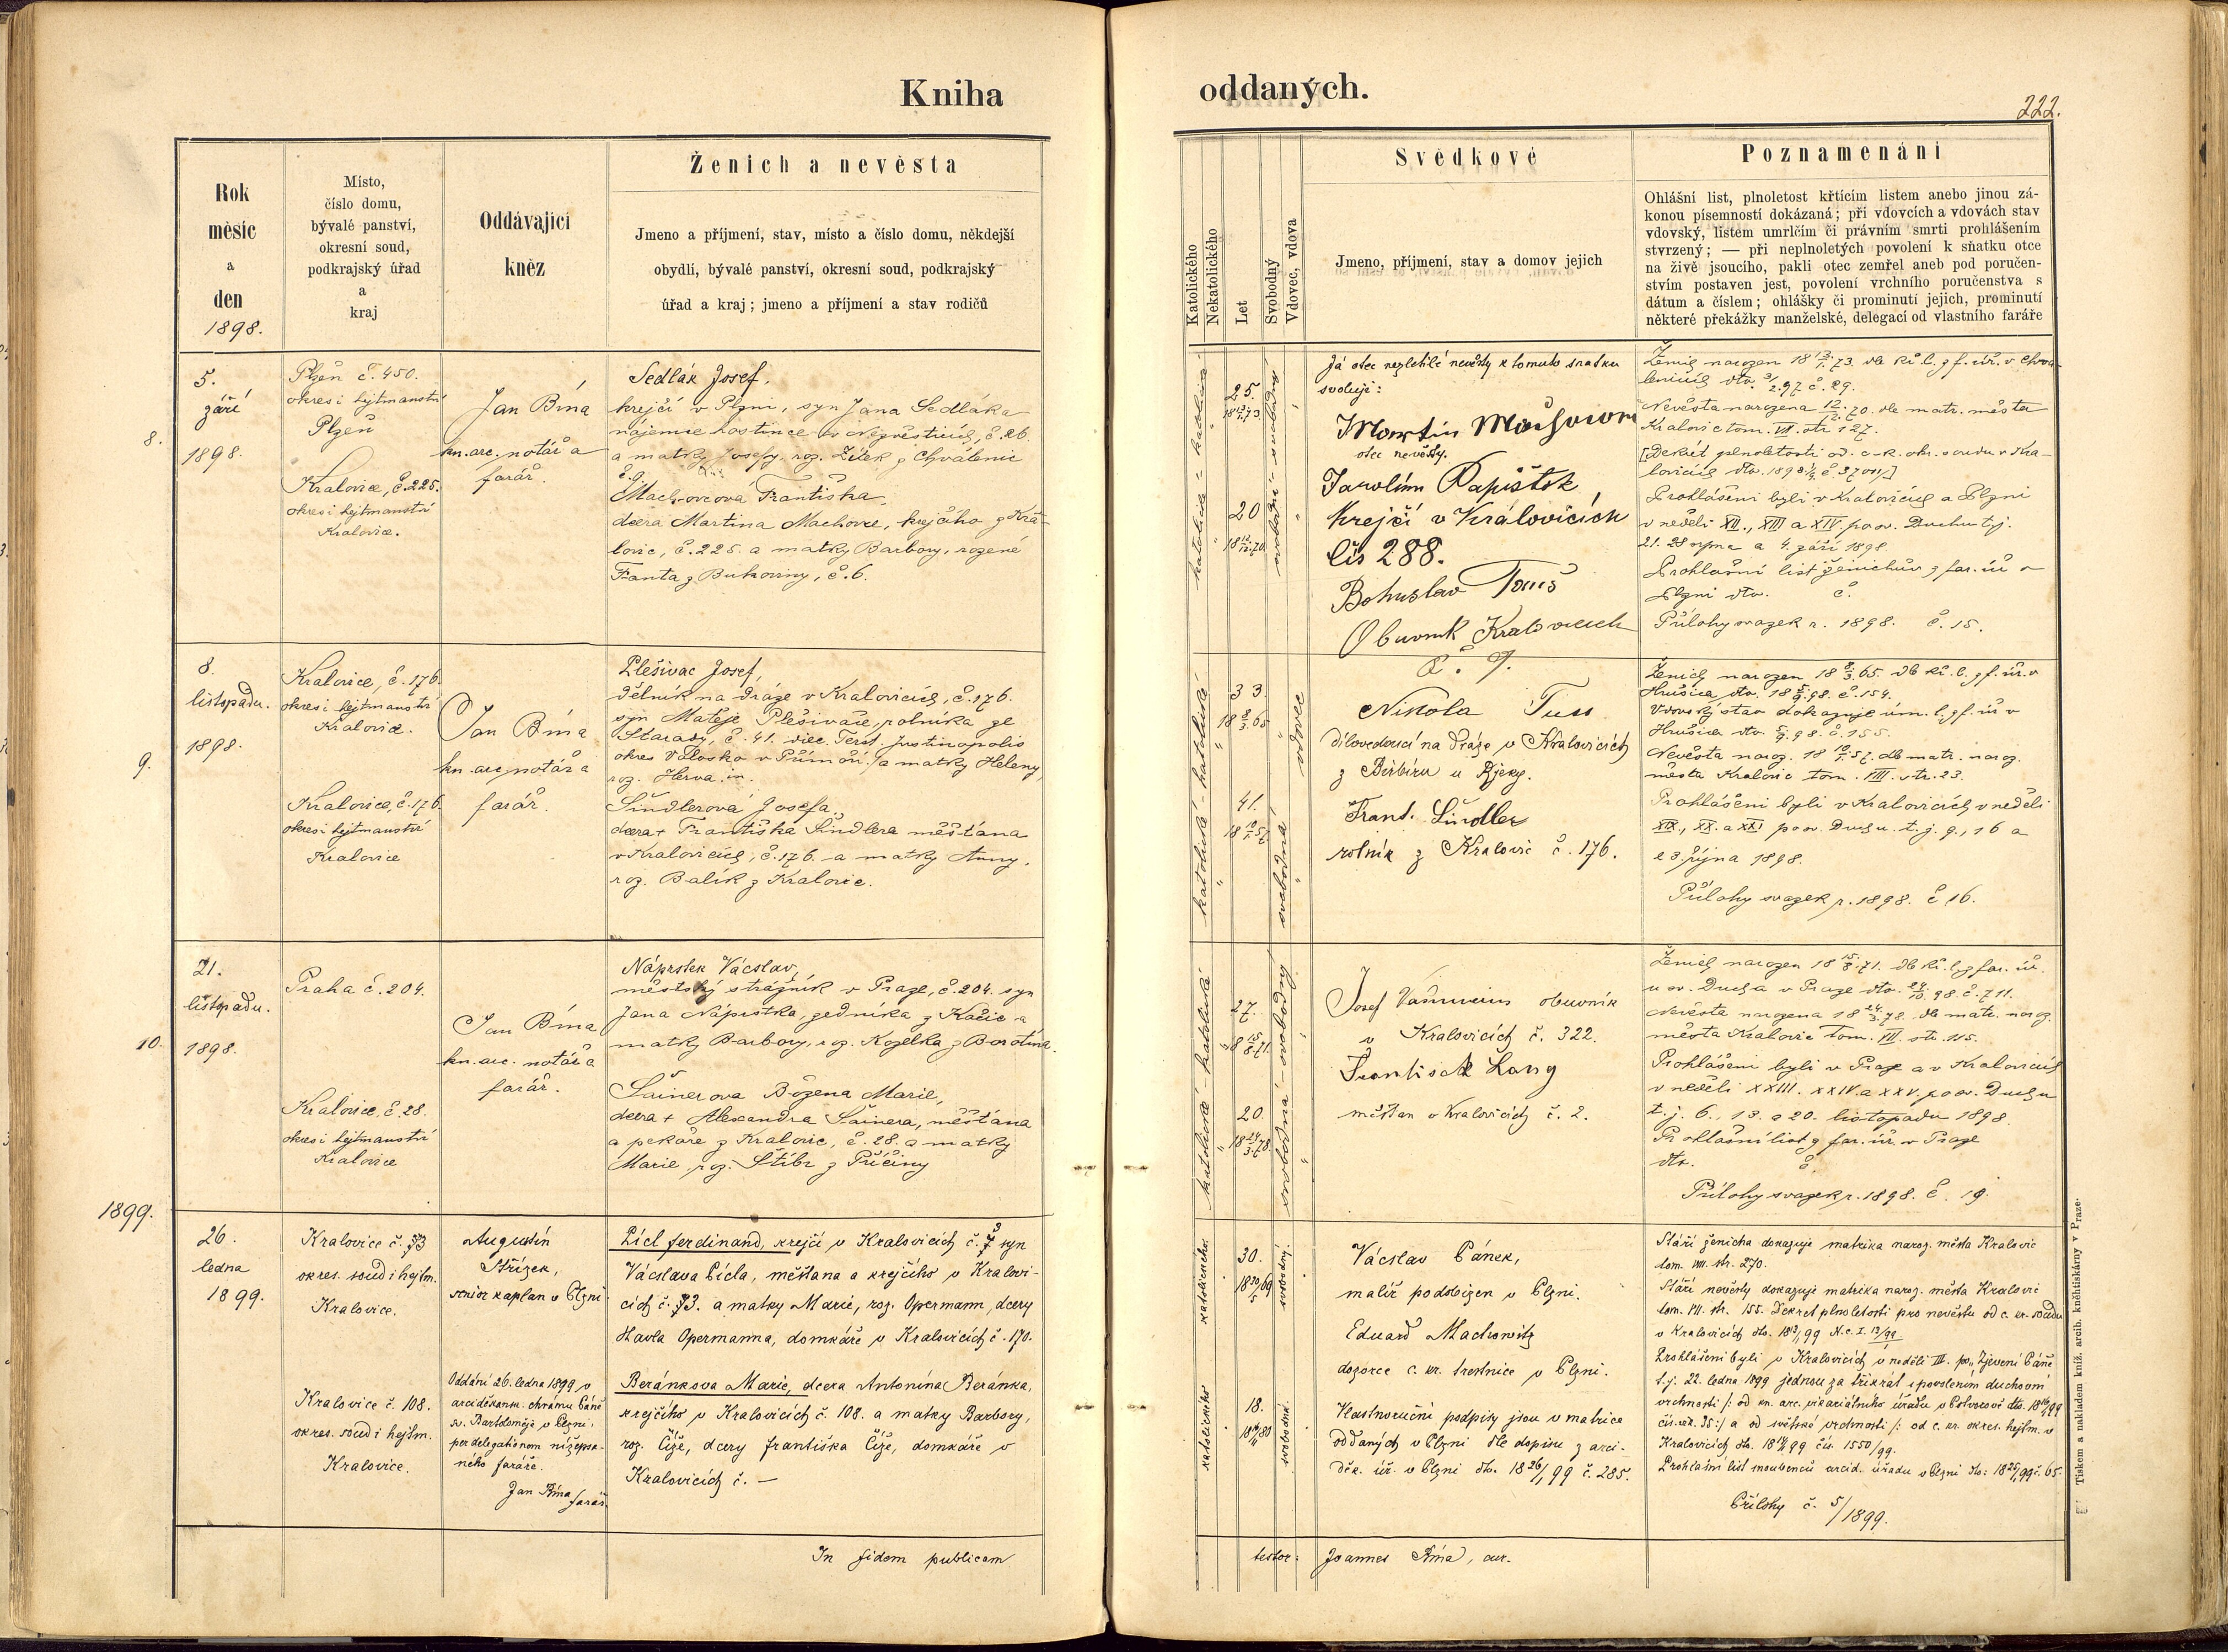 Kniha
oddaných.
222.
Rok
měsíc
a
den
1898.
Místo,
číslo domu,
bývalé panství,
okresní soud,
podkrajský úřad
a
kraj
Oddávající
kněz
Ženich a nevěsta
Jmeno a příjmení, stav, místo a číslo domu, někdejší
obydlí, bývalé panství, okresní soud, podkrajský
úřad a kraj; jmeno a příjmení a stav rodičů
Katolického
Nekatolického
Let
Svobodný
Vdovec, vdova
Svědkové
Jmeno, příjmení, stav a domov jejich
Poznamenání
Ohlášní list, plnoletost křtícím listem anebo jinou zá-
konou písemností dokázaná; při vdovcích a vdovách stav
vdovský, listem umrlčím či právním smrti prohlášením
stvrzený; — při neplnoletých povolení k sňatku otce
na živě jsoucího, pakli otec zemřel aneb pod poručen-
stvím postaven jest, povolení vrchního poručenstva s
dátum a číslem; ohlášky či prominutí jejich, prominutí
některé překážky manželské, delegací od vlastního faráře
8.
5.
září
1898.
Plzeň č. 450.
okres i hejtmanství
Plzeň
Kralovice, č. 225.
okres i hejtmanství
Kralovice.
Jan Bína
kn. arc. notář a
farář.
Sedlák Josef,
krejčí v Plzni, syn Jana Sedláka
nájemce hostince v Nezvěsticích, č. 26.
a matky Josefy, roz. Žítek z Chválenic
č. 9.
Machovcová Františka
dcera Martina Machovce, krejčího z Kra-
lovic, č. 225. a matky Barbory, rozené
Franta z Bukoviny, č. 6.
katolická - katolická
25.
20
svobodná - svobodný
Já otec nezletilé nevěsty k tomuto sňatku
svoluji:
Martin
otec nevěsty.
Jarolím Papištok
Krejčí v Královicích
čís 288.
Bohuslav Touš
Obuvník Kralovicích
č. 9.
Ženich narozen 18 73. dle kř. l. z f. úř. v Chvá-
lenicích dto. 3/2. 97 č. 29.
Nevěsta narozena 12/12. 70. dle matr. města
Kralovic tom. VII. str 127.
[Dekret plnoletosti od c. k. okr. soudu v Kra-
lovicích dto. 1898
Prohlášeni byli v Kralovicích a Plzni
v neděli XII., XIII a XIV. po sv. Duchu t. j.
21. 28 srpna a 4. září 1898.
Prohlašní list ženichův z far. úř. v
Plzni dto. č.
Přílohy svazek r. 1898. č. 15.
9.
8.
listopadu.
1898.
Kralovice, č. 176.
okres i hejtmanství
Kralovice.
Kralovice, č. 176.
okres i hejtmanství
Kralovice
Jan Bína
kn. arc. notář a
farář.
Plešivac Josef,
dělník na dráze v Kralovicích, č. 176.
syn Matěje Plešivače, rolníka ze
Starady, č. 41. diec. Terst. Justinopolis
okres Volosko v Přímoří, a matky Heleny,
roz.
Šindlerová Josefa,
dcera + Františka Šindlera měšťana
v Kralovicích, č. 176. a matky Anny,
roz. Balík z Kralovic.
katolická - katolická
33.
18 8/3. 65
41.
18 10/1. 57
svobodná
vdovec
Nikola Tuss
dílovedoucí na dráze v Kralovicích
z u Rjeky.
Frant. Šindler
rolník z Kralovic č. 176.
Ženich narozen 18 8/3. 65. dle kř. l. z f. úř. v
Hrušica dto. 18 98. č. 154.
Vdovský stav dokazuje úm. l. z f. úř v
Hrušica dto. 98. č. 155.
Nevěsta naroz. 18 10/1. 57. dle matr. naroz.
města Kralovic tom. VIII. str. 23.
Prohlášeni byli v Kralovicích v neděli
XIX., XX. a XXI po sv. Duchu. t. j. 9., 16 a
23. října 1898.
Přílohy svazek r. 1898. č 16.
10.
21.
listopadu.
1898.
Praha č. 204.
Kralovice, č. 28.
okres i hejtmanství
Kralovice
Jan Bína
kn. arc. notář a
farář.
Náprstek Václav,
městský strážník v Praze, č. 204. syn
Jana Náprstka, zedníka z Kačic a
matky Barbory, roz. Kozelka z Borotína.
Šainerova Božena Marie,
dcera + Alexandra Šainera, měšťana
a pekaře z Kralovic, č. 28. a matky
Marie, roz. Štíbr z Příčiny
katolická katolická
27.
18 15/8. 71.
20.
18 24/3. 78.
svobodná - svobodný
Josef obuvník
v Kralovicích č. 322.
František Lang
měšťan v Kralovicích č. 2.
Ženich narozen 18 15/8. 71. dle kř. l. z far. úř.
u sv. Ducha v Praze dto. 24/10. 98. č. 711.
Nevěsta narozena 18 24/3. 78. dle matr. naroz.
města Kralovic tom. VII. str. 115.
Prohlášeni byli v Praze a v Kralovicích
v neděli XXIII. XXIV. a XXV. po sv. Duchu
t. j. 6., 13. a 20. listopadu 1898.
Prohlašní list z far. úř. v Praze
dto. č.
Přílohy svazek r. 1898. č. 19.
1899.
26.
ledna
1899.
Kralovice č. 73
okres. soud i hejtm.
Kralovice.
Kralovice č. 108.
okres. soud i hejtm.
Kralovice.
Augustin
Střízek,
senior kaplan v Plzni
Oddáni 26. ledna 1899 v
arciděkansk. chrámu Páně
sv. Bartoloměje v Plzni.
per delegationem nížepsa-
ného faráře.
Jan Bína farář.
Picl Ferdinand, krejčí v Kralovicích č. 73 syn
Václava Picla, měšťana a krejčího v Kralovi-
cích č. 73. a matky Marie, roz. Opermann, dcery
Havla Opermanna, domkáře v Kralovicích č. 170.
Beránkova Marie, dcera Antonína Beránka,
krejčího v Kralovicích č. 108. a matky Barbory,
roz. Číže, dcery Františka Číže, domkáře v
Kralovicích č. —
katolického
30.
svobodný.
katolického
18.
svobodná.
Václav Pánek,
malíř podobizen v Plzni.
Eduard Machowitz
dozorce c. kr. trestnice v Plzni.
Vlastnoruční podpisy jsou v matrice
oddaných v Plzni dle dopisu z arci-
děk. úř. v Plzni dto. 18 26/1 99 č. 285.
Stáří ženicha dokazuje matrika naroz. města Kralovic
tom. VIII. str. 270.
Stáří nevěsty dokazuje matrika naroz. města Kralovic
tom. VII. str. 155. Dekret plnoletosti pro nevěstu od c. kr. soudu
v Kralovicích dto. 18 99 N. c. I. 13/99.
Prohlášeni byli v Kralovicích v neděli III. po „Zjevení Páně“
t. j. 22. ledna 1899 jednou za třikrát s povolením duchovní
vrchnosti /: od kn. arc. vikariátního úřadu v
a od světské vrchnosti /: od c. kr. okres. hejtm. v
Kralovicích dto. 18 99 čís. 1550/99.
Prohlašní list snoubenců arcid. úřadu v Plzni dto: 18 25/1 99 č. 65.
Přílohy č. 5/1899.
In fidem publicam
testor: Joannes Bína, cur.
Tiskem a nakladem kníž. arcib. kněhtiskárny v Praze.